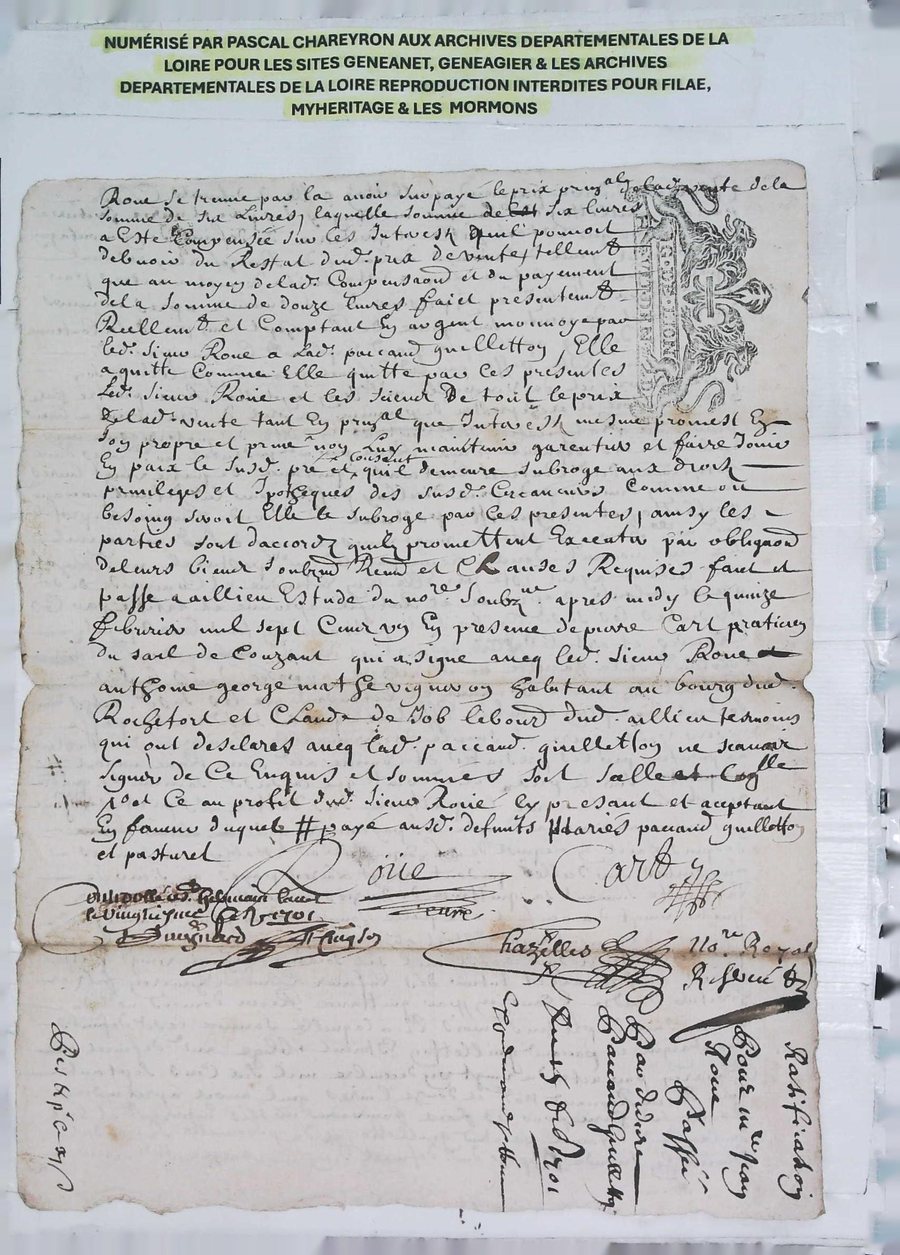 NUMÉRISÉ PAR PASCAL CHAREYRON AUX ARCHIVES DEPARTEMENTALES DE LA
LOIRE POUR LES SITES GENEANET, GENEAGIER & LES ARCHIVES
DEPARTEMENTALES DE LA LOIRE REPRODUCTION INTERDITES POUR FILAE,
MYHERITAGE & LES MORMONS
Roue se treuue par la auoir surpayé le prix prinal de lad. vente de la
somme de six Liures, laquelle somme de six liures
a Esté Compensée sur les Interestz quil pouuoit
debuoir du Restat dud. prix de vente, tellemt
que au moyen de lad. Compensaon et du payement
de la somme de douze liures faict presentemt
Reellemt et Comptant En argent monnoye par
led. sieur Roue a lad. paccaud guilletton, Elle
a quitté Comme Elle quitte par ces presentes
Led. sieur Roüe et les sciens De tout le prix
de lad. vente tant En prinal que Interestz mesme promest En
son propre et priue nom Luy maintenir garentir et faire Jouir
En paix le susd. pré et consent quil demeure subrogé aux droitz
priuileges et Ipotheques des susd. Comme ou
besoing seroit Elle le subroge par ces presentes, ainsy les
parties sont daccord quilz promettent Executer par obligaon
de leurs biens Soubmd Renond et Clauses Requises faict et
passé a aillieu Estude du nore Soubzne apres midy le quinze
feburier mil sept Centz vn En presence de pierre Cart praticien
du sail de Couzant qui a signe aueq led. sieur Roue
anthoine george mathe vigneron habitant au bourg dud.
Rochefort et Claude de Job Lebourd dud. aillieu tesmoins
qui ont desclarés aueq lad. paccaud guilletton ne scauoir
signer de Ce Enquis et sommés soit
et Ce au profit dud. sieur Roüé Cy presant et aceptant
En faueur duquel # payé ausd. defunts Mariés paccaud guilletton
et pasturel
Roüe
Cart
le vingtiesme 1701
Chazelles nore Royal
Reserué
Ratificahon
Pour mre Jean
Roue
Passé
Par didiere
Paccaud guilletton
1701